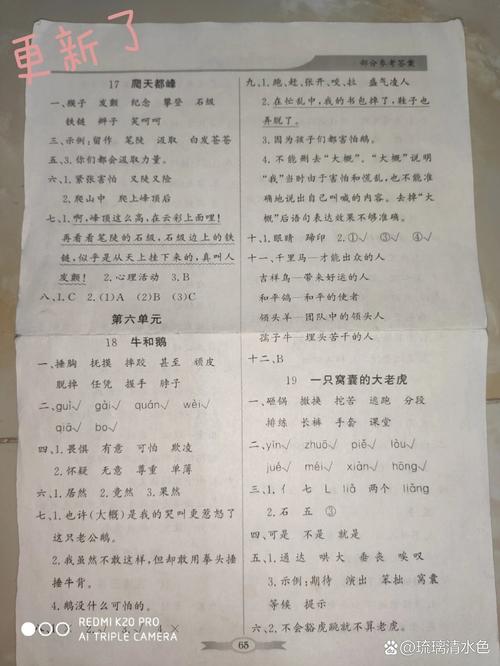 更新了
部分参考答案
17 爬天都峰
一、猴子 发颤 纪念 攀登 石级
铁链 辫子 笑呵呵
三、示例:留作 笔陡 汲取 白发苍苍
五、3.你们都会汲取力量。
六、1.紧张害怕 又陡又险
2.爬山中 爬上峰顶后
七、1.啊,峰顶这么高,在云彩上面哩!
再看看笔陡的石级,石级边上的铁
链,似乎是从天上挂下来的,真叫人
发颤! 2.心理活动 3.B
八、1.C 2.(1)A (2)B (3)C
第六单元
18 牛和鹅
一、捶胸 抚摸 摔跤 甚至 顽皮
脱掉 任凭 握手 脖子
二、guì√ gài√ quán√ wèi√
qiā√ bo√
四、1.畏惧 有意 可怕 欺凌
2.怀疑 无意 尊重 单薄
六、1.居然 2.竟然 3.果然
七、1.也许(大概)是我的哭叫更惹怒了
这只老公鹅。
2.我虽然不敢这样,但却敢用拳头捶
捶牛背。
4.鹅没什么可怕的。
九、1.跑、赶、张开、咬、拉 盛气凌人
2.在忙乱中,我的书包掉了,鞋子也
弄脱了。
3.因为孩子们都害怕鹅。
4.不能删去“大概”。“大概”说明
“我”当时由于害怕和慌乱,也不能准
确地说出自己叫喊的内容。去掉“大
概”后语句表达效果不够准确。
十、1.眼睛 蹄印 2.①√ ③√ ④√
十一、千里马—才能出众的人
吉祥鸟—带来好运的人
和平鸽—和平的使者
领头羊—团队中的领头人
孺子牛—埋头苦干的人
十二、B
19 一只窝囊的大老虎
一、砸锅 撤换 挖苦 逃跑 分段
排练 长裤 手套 课堂
二、yīn√ zhuō√ piě√ lòu√
jué√ méi√ xiàn√ hōng√
三、1.亻 七 L liǎ 两个 liǎng
2.石 五 ③
四、可是 不是 就是
五、1.通达 哄大 垂丧 唉叹
3.示例:期待 演出 笨拙 窝囊
等候 提示
六、2.不会豁虎跳就不算老虎。
REDMI K20 PRO
AI TRIPLE CAMERA
65
@琉璃清水色